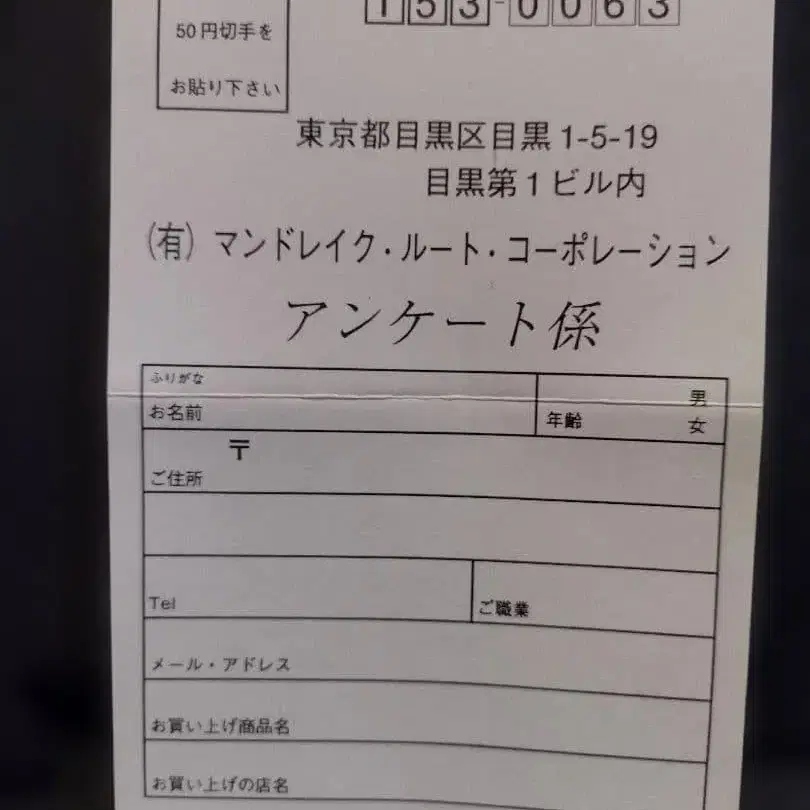 153-0063
50円切手を
お貼り下さい
東京都目黒区目黒1-5-19
目黒第1ビル内
(有) マンドレイク・ルート・コーポレーション
アンケート係
ふりがな
お名前
年齢
男
女
〒
ご住所
Tel
ご職業
メール・アドレス
お買い上げ商品名
お買い上げの店名